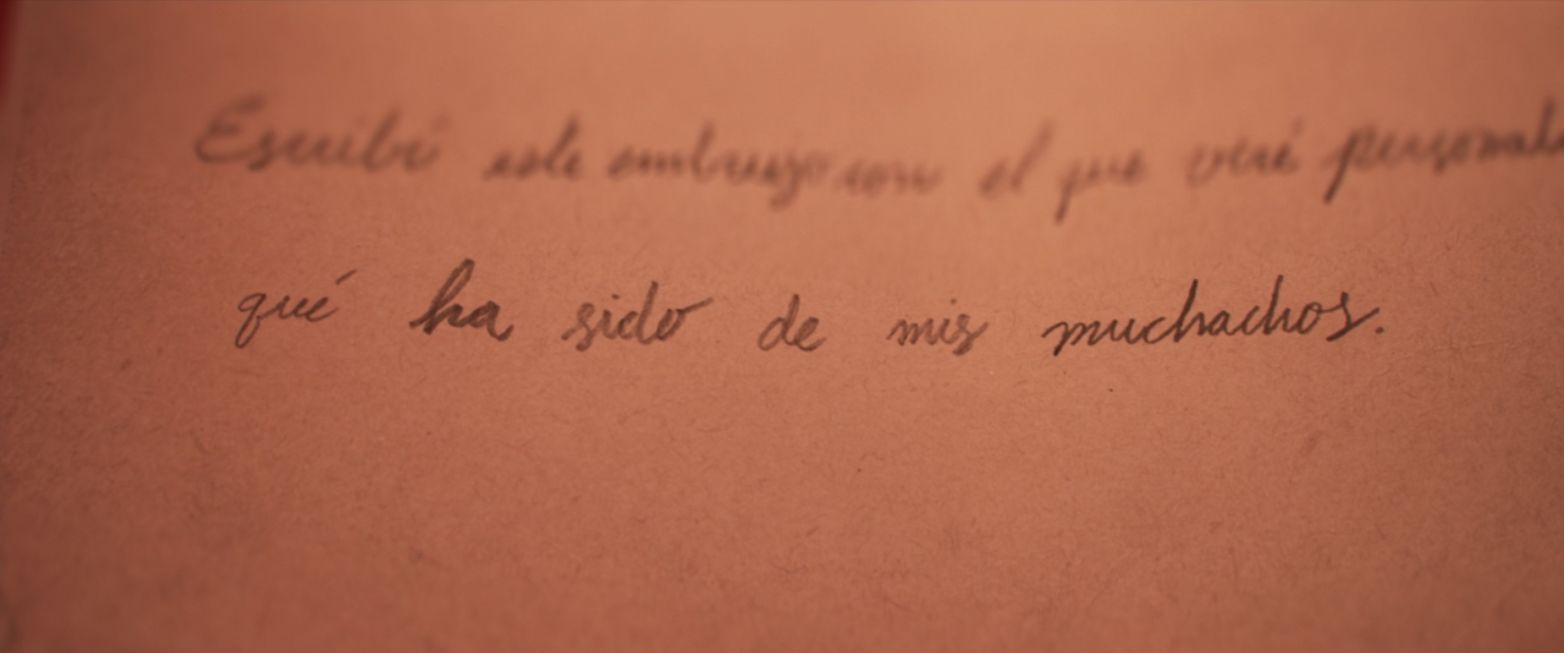 Escribí este embrujo con el que veré
qué ha sido de mis muchachos.